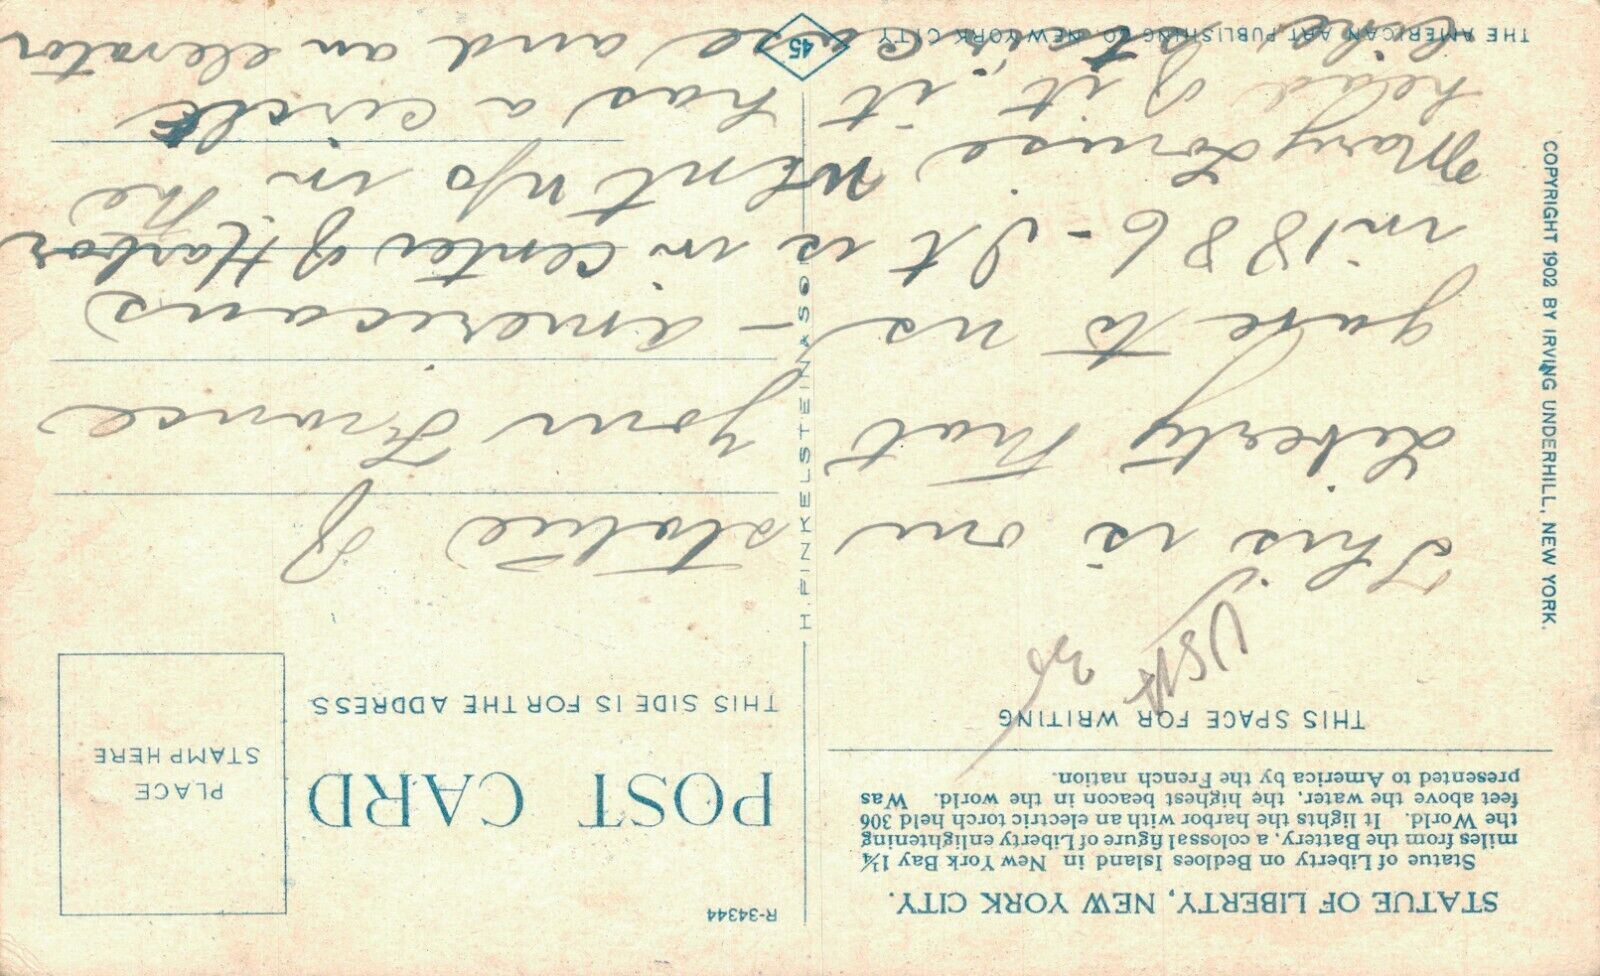 STATUE OF LIBERTY, NEW YORK CITY.
Statue of Liberty on Bedloes Island in New York Bay 1¼
miles from the Battery, a colossal figure of Liberty enlightening
the World. It lights the harbor with an electric torch held 306
feet above the water, the highest beacon in the world. Was
presented to America by the French nation.
THIS SPACE FOR WRITING
USA
R-34344
POST CARD
THIS SIDE IS FOR THE ADDRESS
PLACE
STAMP HERE
This is our statue of
Liberty that your France
gave to us – americans
in 1886 - It is in center of Harbor
Mary Louise went up in the
head of it, it has a circle
like staircase and an elevator
H. FINKELSTEIN & SON
COPYRIGHT 1902 BY IRVING UNDERHILL, NEW YORK.
THE AMERICAN ART PUBLISHING CO. NEW YORK CITY
45